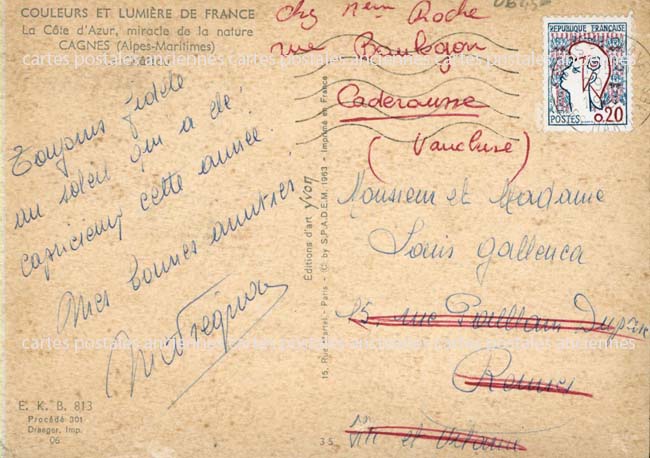 COULEURS ET LUMIÈRE DE FRANCE
La Côte d'Azur, miracle de la nature
CAGNES (Alpes-Maritimes)
Toujours fidèle
au soleil qui a été
capricieux cette année
Mes bonnes amitiés
E. K. B. 813
Procédé 301
Draeger, Imp.
06
Éditions d'art yvon
15, Rue - Paris - (C) by S.P.A.D.E.M. 1963 - Imprimé en France
35
chez Mme Roche
rue
Caderousse
(Vaucluse)
RÉPUBLIQUE FRANÇAISE
POSTES
0,20
Monsieur et Madame
Louis Gallenca
15, rue
Rennes
et Vilaine
cartes postales anciennes cartes postales anciennes cartes postales anciennes
cartes postales anciennes cartes postales anciennes cartes postales anciennes